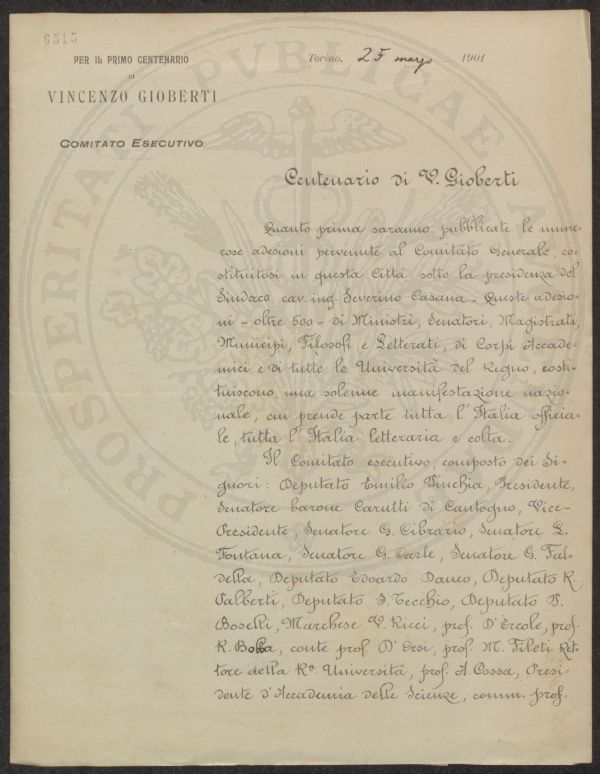 6515
PER IL PRIMO CENTENARIO
DI
VINCENZO GIOBERTI
COMITATO ESECUTIVO
Torino, 25 marzo 1901
PROSPERITATI PVBLICAE
Centenario di V. Gioberti
Quanto prima saranno pubblicate le nume-
rose adesioni pervenute al Comitato Generale, co-
stituitosi in questa Città sotto la presidenza del
Sindaco cav. ing. Severino Casana - Queste adesio-
ni - oltre 500 - di Ministri, Senatori, Magistrati,
Municipi, Filosofi e Letterati, di Corpi Accade-
mici e di tutte le Università del Regno, costi-
tuiscono una solenne manifestazione nazio-
nale, cui prende parte tutta l'Italia officia-
le, tutta l'Italia letteraria e colta.
Il Comitato esecutivo, composto dei Si-
gnori: Deputato Emilio Pinchia, Presidente,
Senatore barone Carutti di Cantogno, Vice-
Presidente, Senatore G. Cibrario, Senatore L.
Fontana, Senatore G. Carle, Senatore G. Fal-
della, Deputato Edoardo Daneo, Deputato R.
Palberti, Deputato S. Tecchio, Deputato P.
Boselli, Marchese V. Ricci, prof. D'Ercole, prof.
R. Bobba, conte prof. D'Orsi, prof. M. Fileti Ret-
tore della Rª. Università, prof. A. Cossa, Presi-
dente d'Accademia delle Scienze, comm. prof.